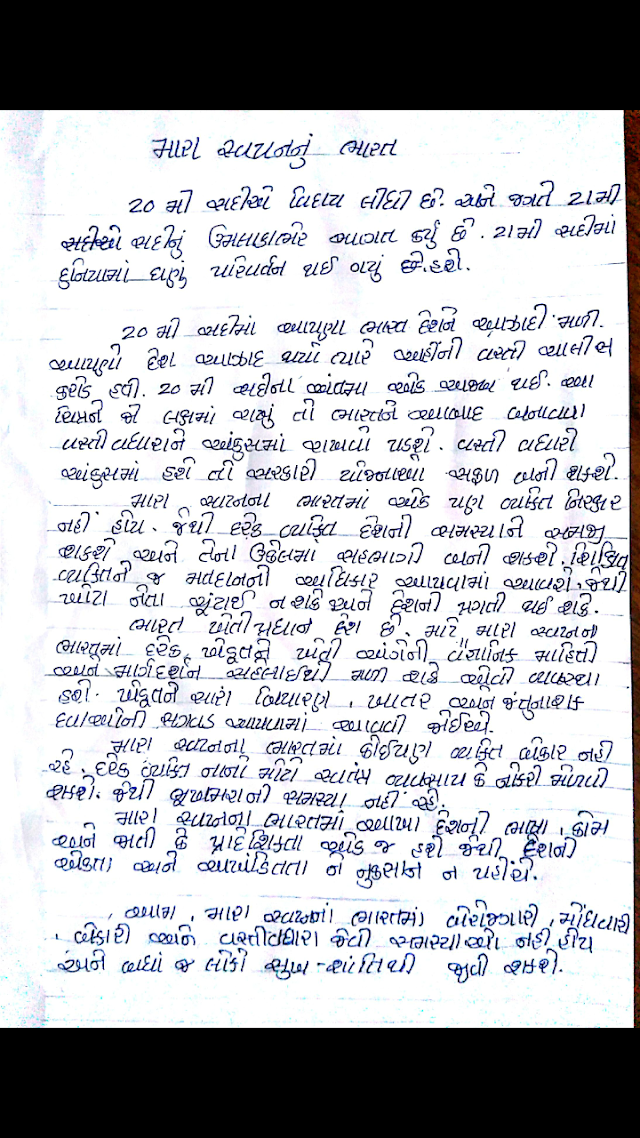 મારા સ્વપ્નનું ભારત
20 મી સદીએ વિદાય લીધી છે. અને જગતે 21મી
સદીનું ઉમળકાભેર સ્વાગત કર્યું છે. 21મી સદીમાં
દુનિયામાં ઘણું પરિવર્તન થઈ ગયું હશે.
20 મી સદીમાં આપણા ભારત દેશને આઝાદી મળી.
આપણો દેશ આઝાદ થયો ત્યારે અહીંની વસ્તી ચાલીસ
કરોડ હતી. 20 મી સદીના અંતમા એક અબજ થઈ. આ
ચિત્રને જો લક્ષમાં રાખું તો ભારતને આબાદ બનાવવા
વસ્તી વધારાને અંકુસમાં રાખવો પડશે. વસ્તી વધારો
અંકુસમાં હશે તો સરકારી યોજનાઓ સફળ બની શકશે.
મારા સ્વપ્નના ભારતમાં એક પણ વ્યક્તિ નિરક્ષર
નહીં હોય. જેથી દરેક વ્યક્તિ દેશની સમસ્યાને સમજી
શકશે અને તેના ઉકેલમાં સહભાગી બની શકશે. શિક્ષિત
વ્યક્તિને જ મતદાનની અધિકાર આપવામાં આવશે. જેથી
ખોટા નેતા ચૂંટાઈ ન શકે અને દેશની પ્રગતી થઈ શકે.
ભારત ખેતી પ્રધાન દેશ છે. માટે મારા સ્વપ્નના
ભારતમાં દરેક ખેડૂતને ખેતી અંગેની વૈજ્ઞાનિક માહિતી
અને માર્ગદર્શન સહેલાઈથી મળી શકે એવી વ્યવસ્થા
હશે. ખેડૂતને સારા બિયારણ, ખાતર અને જંતુનાશક
દવાઓની સગવડ આપવામાં આવવી જોઈએ.
મારા સ્વપ્નના ભારતમાં કોઈપણ વ્યક્તિ બેકાર નહી
રહે. દરેક વ્યક્તિ નાનો મોટો સ્વતંત્ર વ્યવસાય કે નોકરી મેળવી
શકશે. જેથી ભૂખમરાની સમસ્યા નહી રહે.
મારા સ્વપ્નના ભારતમાં આખા દેશની ભાષા, કોમ
અને જાતી કે પ્રાદેશિકતા એક જ હશે જેથી દેશની
એકતા અને અખંડિતતા ને નુકસાન ન પહોંચે.
આમ, મારા સ્વપ્નનાં ભારતમાં બેરોજગારી, મોંઘવારી
, બેકારી અને વસ્તીવધારા જેવી સમસ્યાઓ નહી હોય
અને બધાં જ લોકો સુખ-શાંતિથી જીવી શકશે.